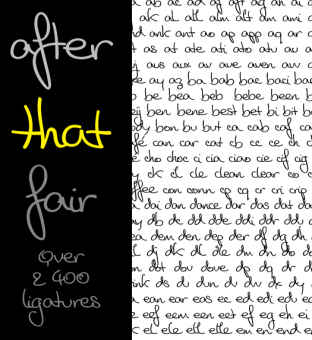 after
that
fair
Over
2 400
ligatures
ab ac ad af aft ag ah ai
ak al all alm alt am ami
ank ant ao ap app aq ar
as at ate ati ato atu av
aus aux av ave aven aw
ay az ba bab bae baci
be bea beb bebe been
ben bene best bet bi bit
bon bu but ca cab caf
can car cat cb cc ce ch
cho choc ci cia ciao cie cif cig
ck cl cle clean clear co
con conn cp cq cr cri crip
dai dan dance dar das dat
db dc dd dde ddi ddr
dem den dep der df dg dh
dj dk dl dle dm dn do
dot dov dove dp dq dr
ds dun dv dx dy
ean ear eas ec ed edi edu
eef eem een eet ef eg eh ei
el ele ell elle em en end